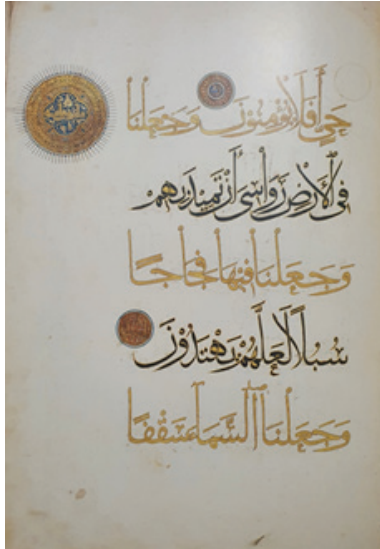 حَيٍّ أَفَلَا يُؤْمِنُونَ وَجَعَلْنَا
فِي الْأَرْضِ رَوَاسِيَ أَنْ تَمِيدَ بِهِمْ
وَجَعَلْنَا فِيهَا فِجَاجًا
سُبُلًا لَعَلَّهُمْ يَهْتَدُونَ
وَجَعَلْنَا السَّمَاءَ سَقْفًا